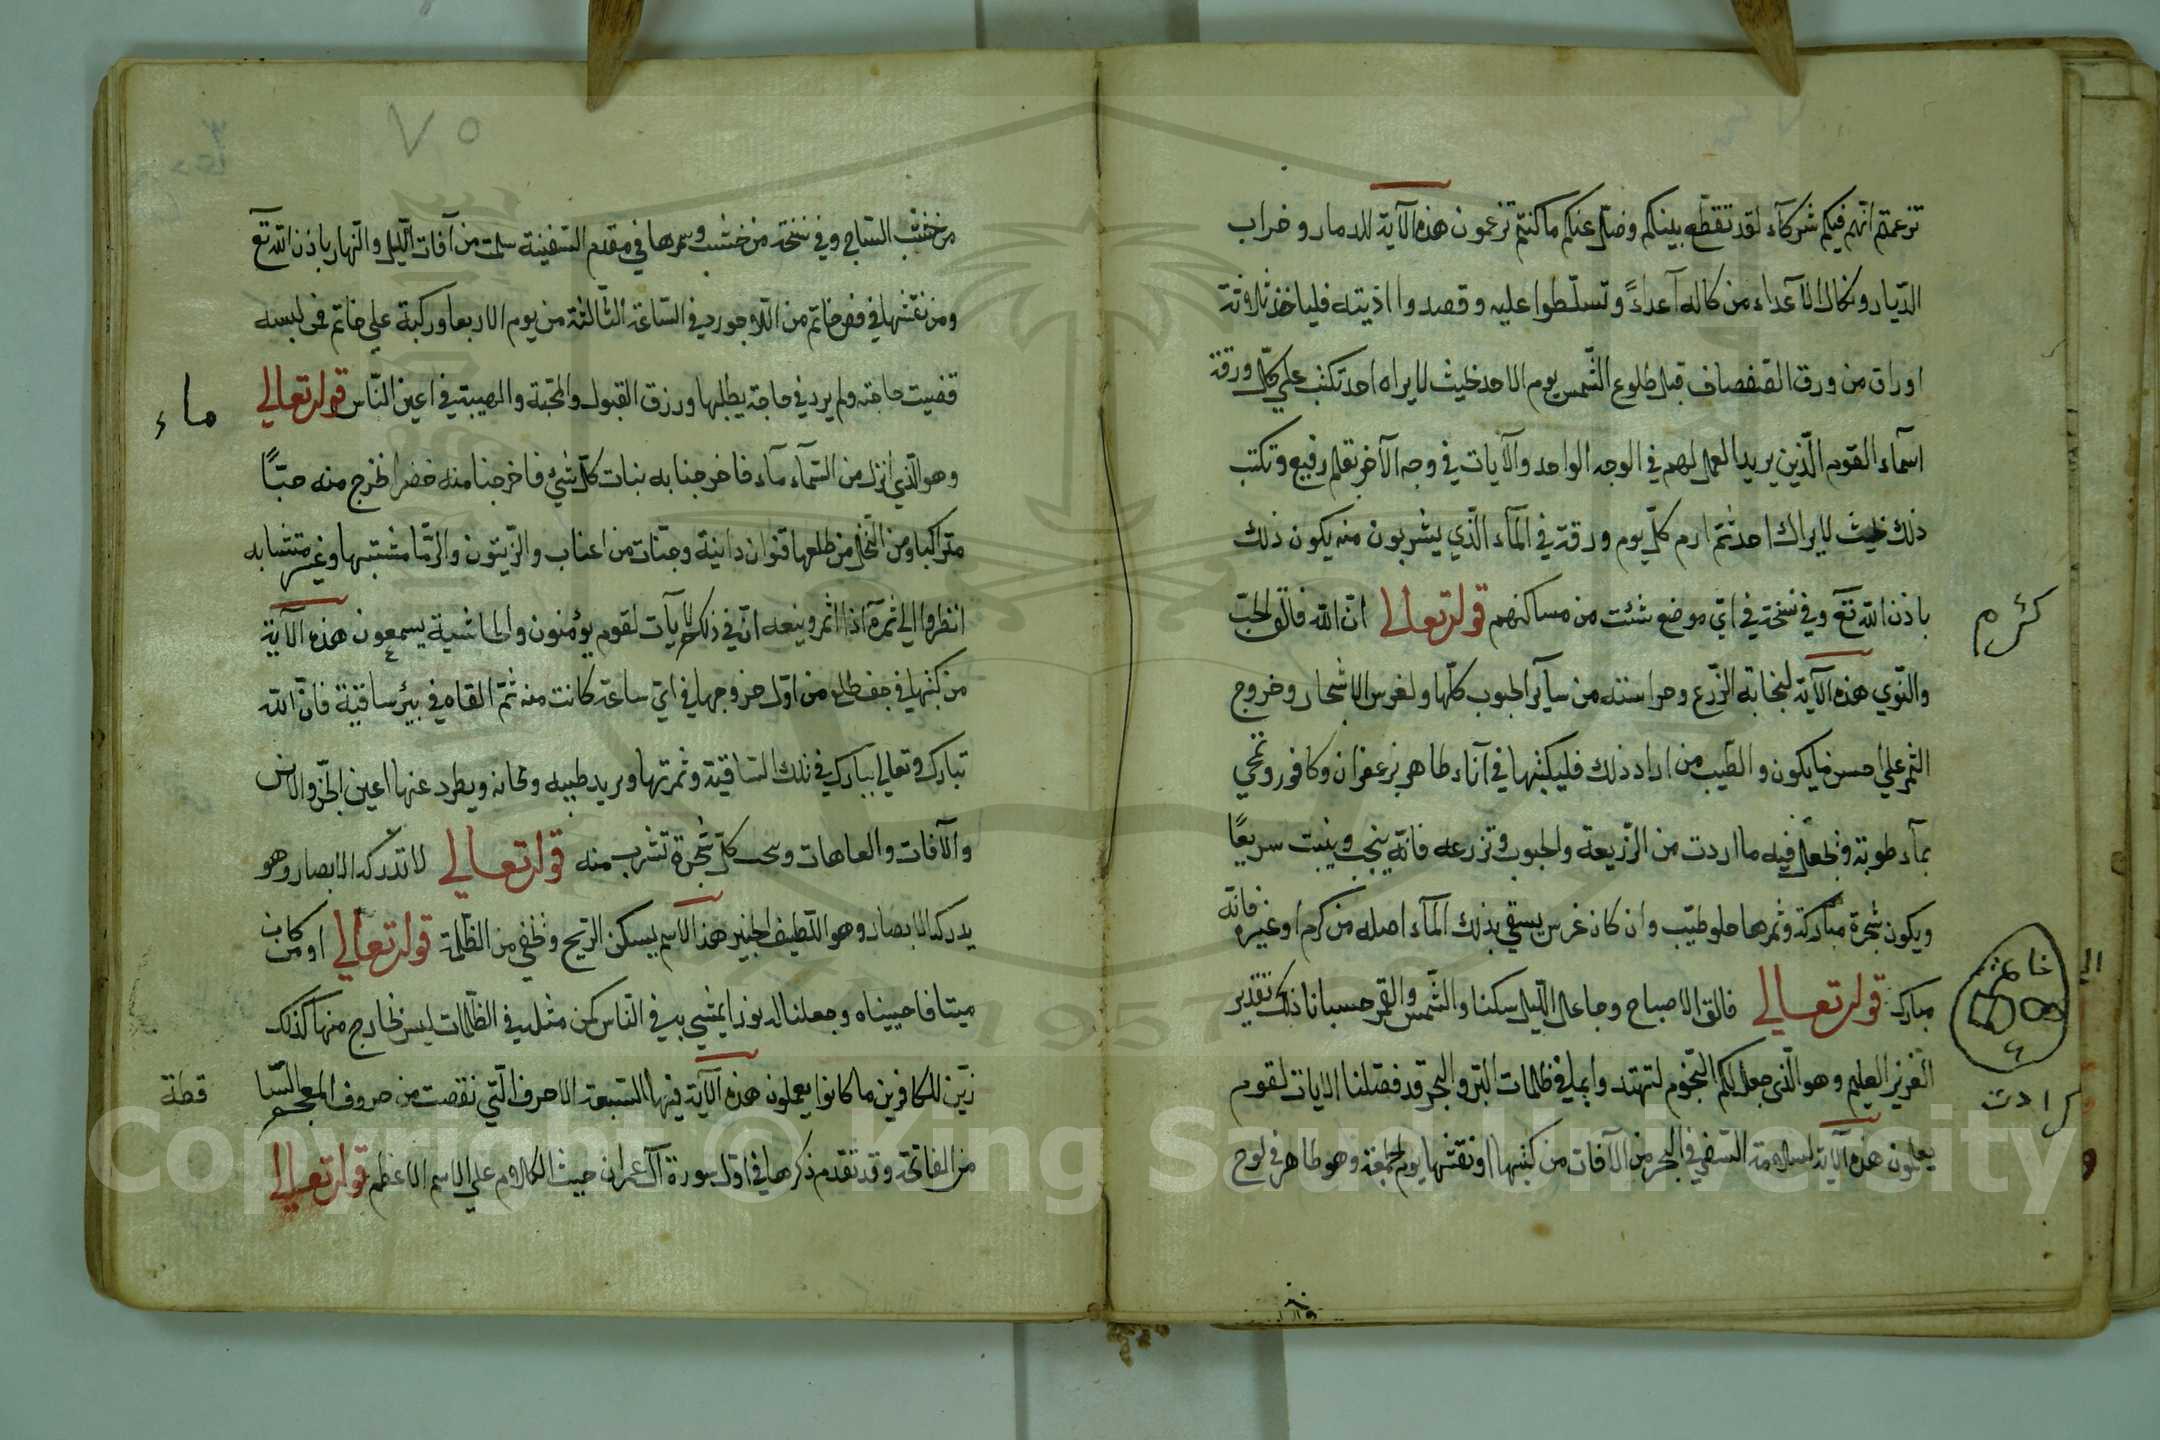 تزعمتم انهم فيكم شركآء لقد تقطع بينكم وضل عنكم ما كنتم تزعمون هذه الآية للدمار وخراب
الديار ونكال الاعداء من كاله آعداءً وتسلطوا عليه وقصدوا اذيته فلياخذ ثلاثة
اوراق من ورق الصفصاف قبل طلوع الشمس يوم الاحد بحيث لا يراه احد تكتب على كل ورقة
اسمآء القوم الذين يريد العمل لهم في الوجه الواحد والآيات في وجه الآخر بقلم رفيع وتكتب
ذلك بحيث لا يراك احد ثم ارم كل يوم ورقة في المآء الذي يشربون منه يكون ذلك
باذن الله تع وفي نسخة في اي موضع شئت من مساكنهم قوله تعالى ان الله فالق الحب
كرم
والنوى هذه الآية لنجابة الزرع وحراسته من سآير الحبوب كلها ولغرس الاشجار وخروج
الثمر على احسن ما يكون والطيب من اراد ذلك فليكتبها في آناء طاهر بزعفران وكافور وتمحي
بمآء طوبة وتجعل فيه ما اردت من الزريعة والحبوب وتزرعه فانه ينجب وينبت سريعًا
ويكون شجرة مباركة وثمرها حلو طيب وان كان غرس يسقي بذلك المآء اصله من كرم او غيره فانه
مبارك قوله تعالى فالق الاصباح وجاعل الليل سكنا والشمس والقمر حسبانا ذلك تقدير
العزيز العليم وهو الذي جعل لكم النجوم لتهتدوا بها في ظلمات البر والبحر قد فصلنا الايات لقوم
يعلمون هذه الآية لسلامة السفن في البحر من الآفات من كتبها او نقشها يوم الجمعة وهو طاهر في لوح
٧٥
من خشب الساج وفي نسخة من خشب وسمرها في مقدم السفينة سلمت من آفات الليل والنهار باذن الله تع
ومن نقشها في فص خاتم من اللاجورد في الساعة الثالثة من يوم الاربعا وركبه على خاتم فمن لبسه
قضيت حاجته ولم يرد في حاجة يطلبها ورزق القبول والمحبة والهيبة في اعين الناس قوله تعالى
ماء
وهو الذي انزل من السمآء مآء فاخرجنا به نبات كل شئ فاخرجنا منه خضرا نخرج منه حبًا
متراكبا ومن النخل من طلعها قنوان دانية وجنات من اعناب والزيتون والرما مشتبها وغير متشابه
انظروا الى ثمره اذا اثمر وينعه ان في ذلكم لآيات لقوم يؤمنون والحاشية يسمعون هذه الآية
من كتبها في جف طلع من اول خروجها في اي ساعة كانت منه ثم القاه في بئر ساقية فان الله
تبارك وتعالى يبارك في تلك الساقية وثمرتها ويريد طيبه وتحانه ويطرد عنها اعين الجن والانس
والآفات والعاهات وينجب كل شجرة تشرب منه قوله تعالى لا تدركه الابصار وهو
يدرك الابصار وهو اللطيف الخبير هذا الاسم يسكن الريح وتخفى من الظلمة قوله تعالى او من كان
ميتا فاحييناه وجعلنا له نورا يمشي به في الناس كمن مثله في الظلمات ليس بخارج منها كذلك
زين للكافرين ما كانوا يعملون هذه الآية فيها السبعة الاحرف التي نقصت من حروف المعجم
قطة
من الفاتحة وقد تقدم ذكرها في اول سورة آل عمران حيث الكلام على الاسم الاعظم قوله تعالى
1957
Copyright © King Saud University